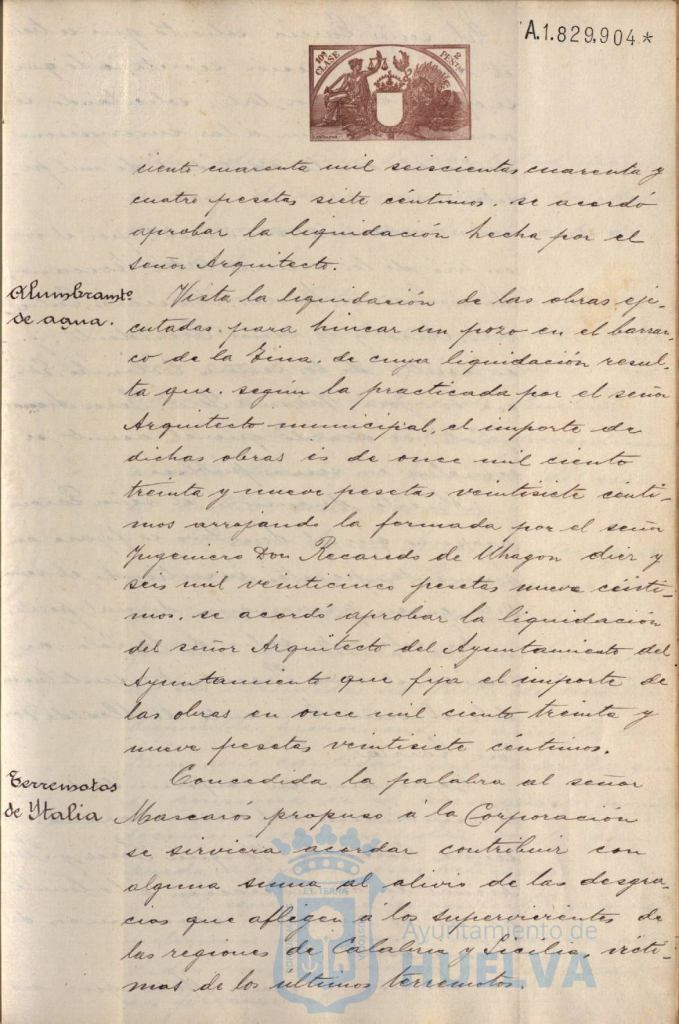 A.1.829.904 *
10ª CLASE 2 PESETAS
ciento cuarenta mil seiscientas cuarenta y
cuatro pesetas siete céntimos. se acordó
aprobar la liquidación hecha por el
señor Arquitecto.
Alumbramtº
de agua.
Vista la liquidación de las obras eje-
cutadas para hincar un pozo en el barran-
co de la Zina. de cuya liquidación resul-
ta que. según la practicada por el señor
Arquitecto municipal, el importe de
dichas obras es de once mil ciento
treinta y nueve pesetas veintisiete cénti-
mos arrojando la formada por el señor
Yngeniero Don Recaredo de Uhagon diez y
seis mil veinticinco pesetas nueve cénti-
mos. se acordó aprobar la liquidación
del señor Arquitecto del Ayuntamiento del
Ayuntamiento que fija el importe de
las obras en once mil ciento treinta y
nueve pesetas veintisiete céntimos.
Terremotos
de Ytalia
Concedida la palabra al señor
Mascarós propuso á la Corporación
se sirviera acordar contribuir con
alguna suma al alivio de las desgra-
cias que aflegen á los supervivientes de
las regiones de Calabria y Sicilia, vícti-
mas de los últimos terremotos.
Ayuntamiento de
HUELVA